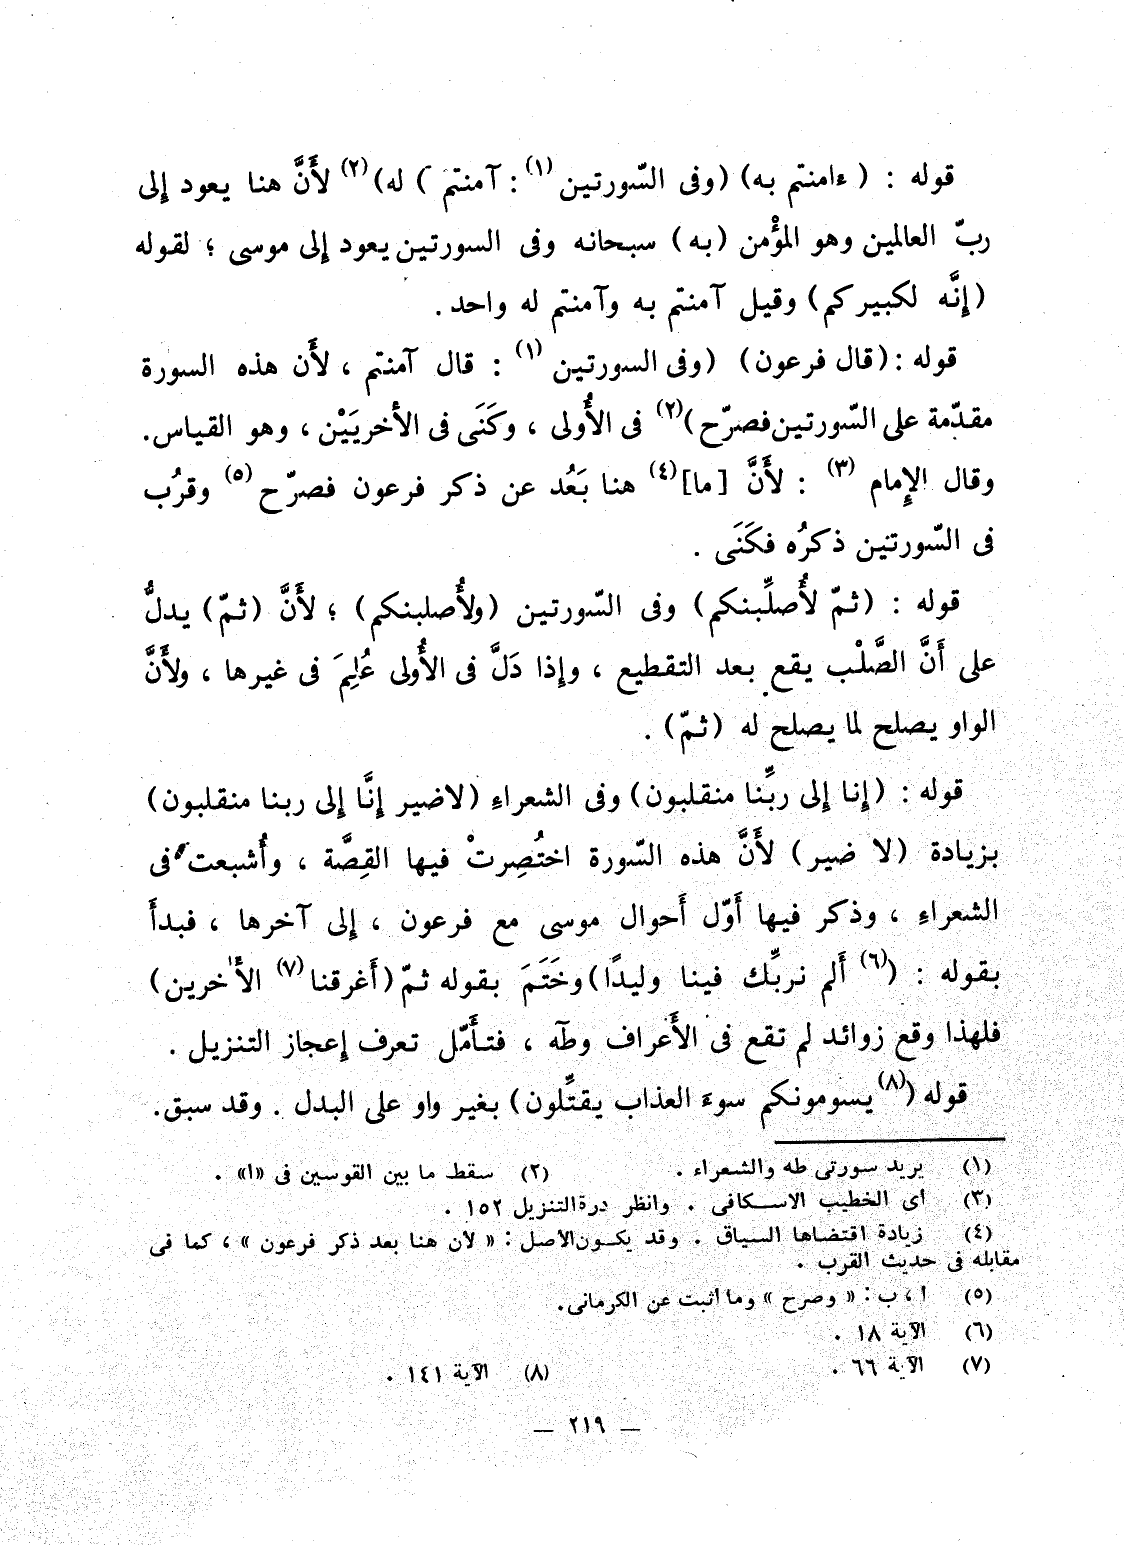 قوله : ( ءامنتم به) (وفى السّورتين (١) : آمنتم ) له) (٢) لأَنَّ هنا يعود إلى
ربّ العالمين وهو المؤْمن (به) سبحانه وفى السورتين يعود إلى موسى ؛ لقوله
(إنَّه لكبيركم) وقيل آمنتم به وآمنتم له واحد .
قوله : (قال فرعون) (وفى السورتين (١) : قال آمنتم ، لأَن هذه السورة
مقدّمة على السّورتين فصرّح) (٢) فى الأُولى ، وكَنَى فى الأخريَيْن ، وهو القياس.
وقال الإمام (٣) : لأَنَّ [ما] (٤) هنا بَعُد عن ذكر فرعون فصرّح (٥) وقرُب
فى السّورتين ذكرُه فكَنَى .
قوله : (ثمّ لأُصلِّبنكم) وفى السّورتين (ولأُصلبنكم) ؛ لأَنَّ (ثمّ) يدلُّ
على أَنَّ الصَّلْب يقع بعد التقطيع ، وإذا دَلَّ فى الأُولى عُلِمَ فى غيرها ، ولأَنَّ
الواو يصلح لما يصلح له (ثمّ) .
قوله : (إنا إلى ربِّنا منقلبون) وفى الشعراءِ (لاضير إنَّا إلى ربنا منقلبون)
بزيادة (لا ضير) لأَنَّ هذه السّورة اختُصِرتْ فيها القِصَّة ، وأُشبعت فى
الشعراءِ ، وذكر فيها أَوّل أَحوال موسى مع فرعون ، إلى آخرها ، فبدأَ
بقوله : ( (٦) أَلم نربِّك فينا وليدًا) وخَتَمَ بقوله ثمّ (أَغرقنا (٧) الأَخرين)
فلهذا وقع زوائد لم تقع فى الأَعراف وطه ، فتأَمّل تعرف إعجاز التنزيل .
قوله ( (٨) يسومونكم سوءَ العذاب يقتِّلون) بغير واو على البدل . وقد سبق.
(١) يريد سورتى طه والشعراء . (٢) سقط ما بين القوسين فى «ا» .
(٣) اى الخطيب الاسكافى . وانظر درة التنزيل ١٥٢ .
(٤) زيادة اقتضاها السياق . وقد يكون الأصل : « لان هنا بعد ذكر فرعون » ، كما فى
مقابله فى حديث القرب .
(٥) ا ، ب : « وصرح » وما أثبت عن الكرمانى.
(٦) الآية ١٨ .
(٧) الآية ٦٦ . (٨) الآية ١٤١ .
— ٢١٩ —